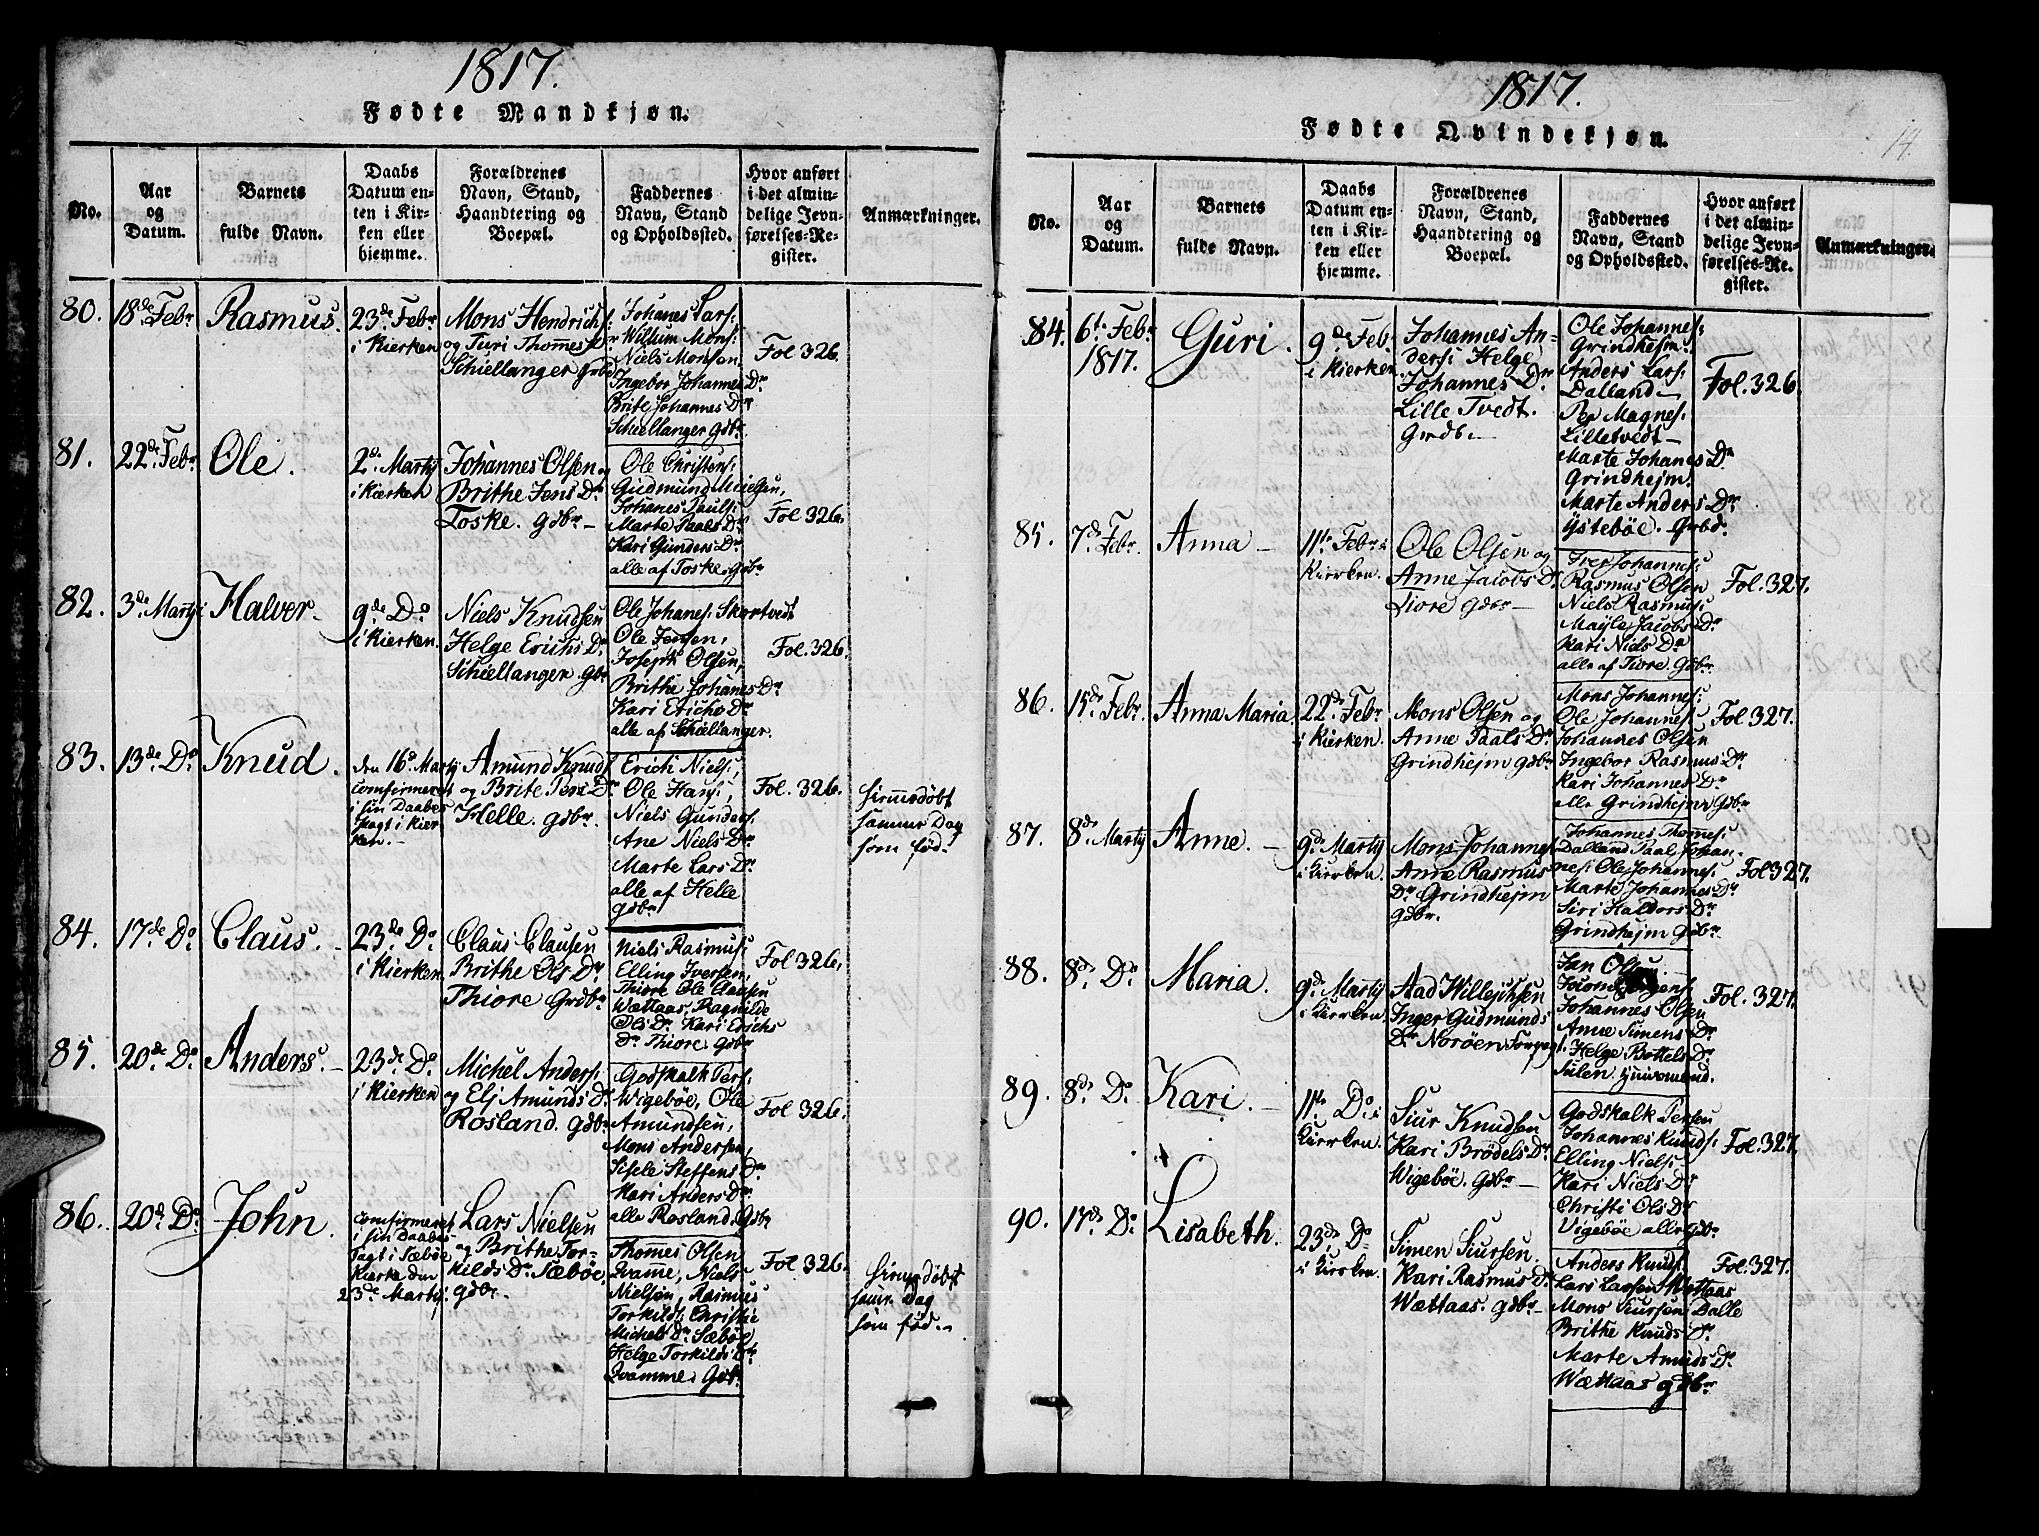 1817.
Fødte Mandkjøn.
No.
Aar
og
Datum.
Barnets
fulde Navn.
Daabs
Datum en-
ten i Kir-
ken eller
hjemme.
Forældrenes
Navn, Stand,
Haandtering og
Boepæl.
Faddernes
Navn, Stand
og Opholdssted.
Hvor anført
i det almin-
delige Jevn-
førelses-Re-
gister.
Anmærkninger.
80.
18de Febr
Rasmus.
23de Febr
i Kierken
Mons Hendrichs:
og Turi Thomes Dr
Schiellanger Grbd
Johanes Lars:
Willum Mons:
Niels Monsen
Ingebor Johannes Dr
Brite Johannes Dr
Schiellanger gdbr.
Fol 326.
81.
22de Febr
Ole.
2de Martij
i Kierken
Johannes Olsen og
Brithe Jens Dr
Toske. gdbr –
Ole Christens:
Gudmund
Johanes Pauls:
Marte Paals Dr
Kari Gunders Dr
alle af Toske. gdbr
Fol 326.
82.
3de Martji
Halver.
9de Do
i Kierken.
Niels Knudsen
Helge Erichs Dr
Schiellanger. gdbr
Ole Johanes: Skortvedt
Ole Jensen,
Joseph Olsen,
Brithe Johanes Dr
Kari Erichs Dr
alle af Schiellanger.
Fol. 326.
83.
13de Do
Knud.
den 16d Martij
comfirmeret
i sin Daabes
Pagt i Kier
ken. –
Amund Knuds:
og Brite Pers Dr
Helle. gdbr.
Erich Niels:,
Ole Hans:,
Niels Gunders:
Ane Niels Dr
Marte Lars Dr
alle af Helle
gdbr
Fol. 326.
hiemmdøbt
samme Dag
som fød.
84.
17de Do
Claus.
23de Do
i Kierken
Claus Clausen
Brithe Ols Dr
Thiore Grdbr
Niels Rasmus:
Elling Iversen,
Thiore Ole Clausen
Wattaas, Ragnilde
Ols Dr Kari Erichs
Dr Thiore. Gdbr
Fol 326.
85.
20de Do
Anders.
23de Do
i Kierken
Michel Anders:
og Elj Amunds Dr
Rosland. gdbr
Godskalk Pers:
Wigebøe, Ole
Amundsen,
Mons Andersen,
Sisele Steffens Dr
Kari Anders Dr
alle Rosland. Gdbr
Fol 326.
86.
20d Do
John.
comfirmeret
i sin Daabes
Pagt i Sæbøe
Kierke den
23de Martij.
Lars Nielsen
og Brithe Tor-
kilds Dr Sæbøe
gdbr.
Thomes Olsen
Qvamme, Niels
Nielsen, Rasmus
Torkilds: Christie
Michels Dr Sæbøe,
Helge Torkilds Dr
Qvamme. Gdbr
Fol 326.
hiemmdøbt
samme Dag
som fød.
1817.
Fødte Qvindekjøn.
14.
No.
Aar
og
Datum.
Barnets
fulde Navn.
Daabs
Datum en-
ten i Kir-
ken eller
hjemme.
Forældrenes
Navn, Stand,
Haandtering og
Boepæl.
Faddernes
Navn, Stand
og Opholdssted.
Hvor anført
i det almin-
delige Jevn-
førelses-Re-
gister.
Anmærkninger.
84.
6te Febr
1817.
Guri.
9de Feb
i Kierken
Johannes An-
ders: Helge
Johannes Dr
Lille Tvedt.
Grdb.
Ole Johannes:
Grindhejm.
Anders Lars:
Dalland –
Per Magnes:
Lilletvedt –
Marte Johanes Dr
Grindhejm.
Marte Anders Dr
Ystebøe. Grbd.
Fol. 326.
85.
7de Febr.
Anna –
11te Febr i
Kierken.
Ole Olsen og
Anne Jacobs Dr
Tiore Gdbr –
Iver Johannes:
Rasmus Olsen
Niels Rasmus:
Maÿle Jacobs Dr
Kari Niels Dr
alle af Tiore. Gdbr.
Fol. 327.
86.
15de Febr.
Anna Maria
22de Febr
i Kierken.
Mons Olsen og
Anne Paals Dr
Grindhejm gdbr
Mons Johannes:
Ole Johannes:
Johannes Olsen
Ingebor Rasmus Dr
Kari Johannes Dr
alle Grindhejm Gdbr
Fol 327.
87.
8de Martij
Anne. –
9d Martij
i Kierken.
Mons Johannes:
Anne Rasmus
Dr Grindhejm
gdbr.
Johannes Thomes:
Dalland Paal Johan-
nes: Ole Johannes:
Marte Johannes Dr
Siri Haldors Dr
Grindhejm Gdbr
Fol 327.
88.
8de Do
Maria.
9d Martij
i Kierken.
Aad Willejchsen
Inger Gudmunds
Dr Norøen
Jan Olsen
Johannes Olsen
Anne Simens Dr
Helge Bottels Dr
Sulen
Fol. 327.
89.
8de Do
Kari. –
11te Do i
Kierken.
Siur Knudsen
Kari Brødels Dr
Wigebøe. Gdbr –
Godskalk Persen
Johannes Knuds:
Elling Niels:
Kari Niels Dr
Christi Ols Dr
Vigebøe alle Gdbr
Fol. 327.
90.
17de Do
Lisabeth.
23de Do
i Kierken.
Simen Siursen
Kari Rasmus Dr
Wættaas. gdbr –
Anders Knuds:
Lars Larsen Wættaas
Mons Siursen Dalle
Brithe Knuds Dr
Marte Amuds Dr
Wættaas gdbr
Fol. 327.